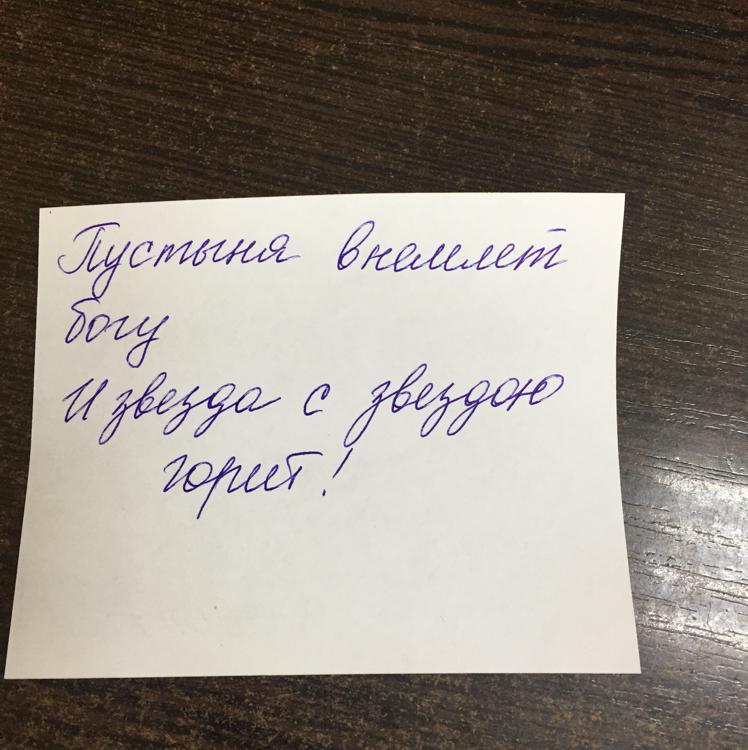 Пустыня внемлет
богу
И звезда с звездою
горит!